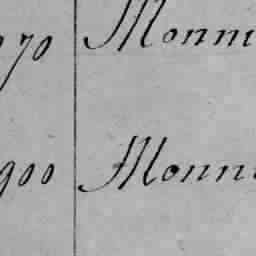 70 Monn
900 Monn